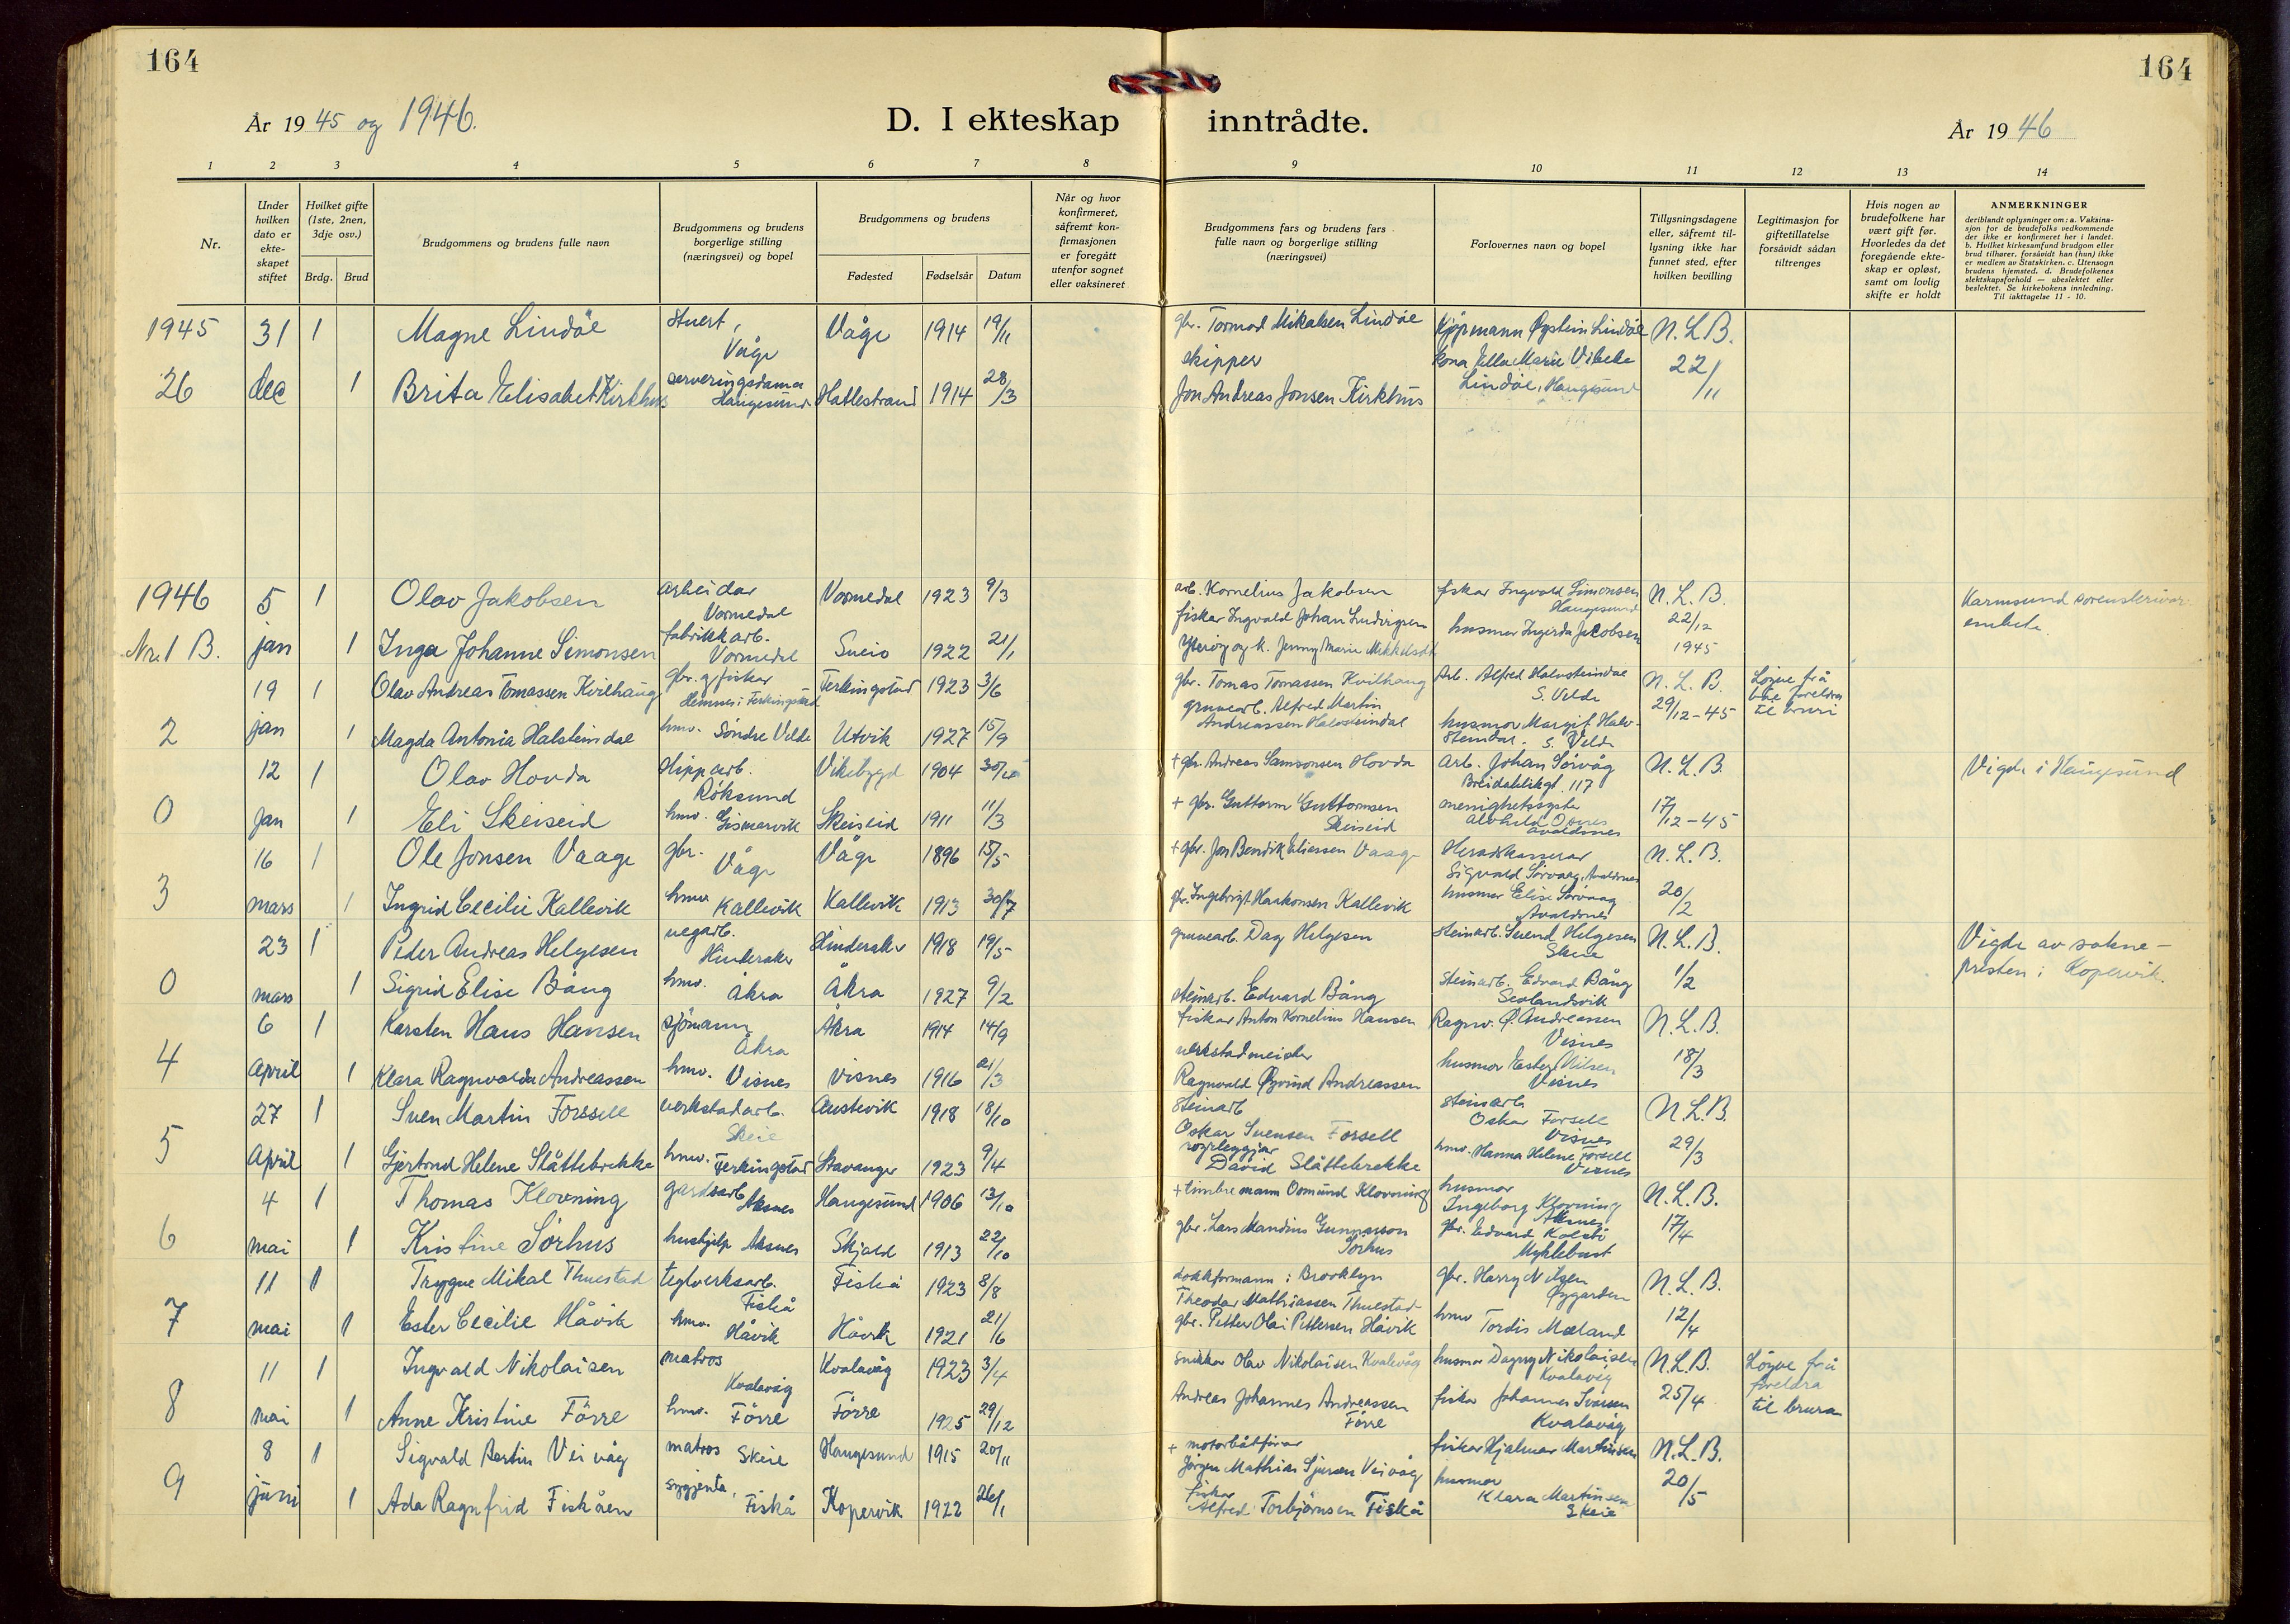 164
164
År 1945 og 1946.
D. I ekteskap inntrådte.
År 1946
1 2 3 4 5 6 7 8 9 10 11 12 13 14
Nr.
Under hvilken dato er ekte-skapet stiftet
Hvilket gifte (1ste, 2nen, 3dje osv.)
Brdg. Brud
Brudgommens og brudens fulle navn
Brudgommens og brudens borgerlige stilling (næringsvei) og bopel
Brudgommens og brudens
Fødested Fødselsår Datum
Når og hvor konfirmeret, såfremt kon-firmasjonen er foregått utenfor sognet eller vaksineret
Brudgommens fars og brudens fars fulle navn og borgerlige stilling (næringsvei)
Forlovernes navn og bopel
Tillysningsdagene eller, såfremt til-lysning ikke har funnet sted, efter hvilken bevilling
Legitimasjon for giftetillatelse forsåvidt sådan tiltrenges
Hvis nogen av brudefolkene har vært gift før. Hvorledes da det foregående ekte-skap er opløst, samt om lovlig skifte er holdt
ANMERKNINGER
deriblandt oplysninger om: a. Vaksina-sjon for de brudefolks vedkommende der ikke er konfirmeret her i landet. b. Hvilket kirkesamfund brudgom eller brud tilhører, forsåvidt han (hun) ikke er medlem av Statskirken. c. Utensogn brudens hjemsted. d. Brudefolkenes slektskapsforhold — ubeslektet eller beslektet. Se kirkebokens innledning. Til iakttagelse 11 - 10.
1945 31 1 Magne Lindøe Stuert, Våge Våge 1914 19/11 gbr. Tormod Mikalsen Lindöe Kjøpmann Øystein Lindöe N.L.B.
26 dec 1 Brita Elisabet Kirkhus serveringsdama Haugesund Hatlestrand 1914 28/3 skipper Jon Andreas Jonsen Kirkhus kona Ella Marie Vibeke Lindöe, Haugesund 22/11
1946 5 1 Olav Jakobsen arbeidar Vormedal Vormedal 1923 9/3 arb. Kornelius Jakobsen fiskar Ingvald Simonsen Haugesund N.L.B. Karmsund sorenskrivar-embete.
Nr. 1 B. jan 1 Inga Johanne Simonsen fabrikkarb. Vormedal Sveio 1922 21/1 fiskar Ingvald Johan Ludvigsen Yterøy og k. Jenny Marie Mikkelsdt husmor Ingerda Jacobsen 22/12 1945
19 1 Olav Andreas Tomassen Kvilhaug gbr. og fiskar Hemnes i Ferkingstad Ferkingstad 1923 3/6 gbr. Tomas Tomassen Kvilhaug Arb. Alfred Halvsteindal S. Velde N.L.B. Løyve frå bae foreldra til bruri
2 jan 1 Magda Antonia Halsteindal hmv. Söndre Velde Utvik 1927 15/9 gruvearb. Alfred Martin Andreassen Halvsteindal husmor Margit Halvsteindal. S. Velde 29/12-45
12 1 Olav Hovda Skipparb. Røksund Vikebygd 1904 30/10 + gbr. Andreas Samsonsen Hovda arb. Johan Sörvåg Breidablikgt. 117 N.L.B. Vigde i Haugesund
0 Jan 1 Eli Skeiseid hmv. Gismarvik Skeiseid 1911 11/3 + gbr. Guttorm Guttormsen Skeiseid Avaldsnes 17/12-45
16 1 Ole Jonsen Vaage gbr. Våge Våge 1896 15/5 + gbr. Jon Bendik Eliassen Vaage Heradskasserar Sigvald Sörvaag, Avaldsnes N.L.B.
3 mars 1 Ingrid Cecilie Kallevik hmv. Kallevik Kallevik 1913 30/7 gbr. Ingebrigt Haakonsen Kallevik husmor Elise Sörvaag Avaldsnes 20/2
23 1 Peder Andreas Helgesen vegarb. Hinderaker Hinderaker 1918 19/5 gruvearb. Dag Helgesen steinarb. Svend Helgesen Skeie N.L.B. Vigde av sokne-presten i Kopervik.
0 mars 1 Sigrid Elise Bång hmv. Åkra Åkra 1927 9/2 steinarb. Edvard Bång steinarb. Edvard Bång Sevlandsvik 1/2
6 1 Karsten Hans Hansen sjömann Åkra Åkra 1914 14/9 fiskar Anton Kornelius Hansen Ragnv. Ø. Andreassen Visnes N.L.B.
4 April 1 Klara Ragnvalda Andreassen hmv. Visnes Visnes 1916 21/3 verkstadmeister Ragnvald Øyvind Andreassen husmor Ester Nilsen Visnes 18/3
27 1 Sven Martin Forssell verkstadarb. Skeie Austevik 1918 18/10 steinarb Oskar Svensen Forsell steinarb Oskar Forsell Visnes N.L.B.
5 April 1 Gjertrud Helene Slåttebrekke hmv. Ferkingstad Stavanger 1923 9/4 røyrleggjar David Slåttebrekke hmv. Hanna Helene Forsell Visnes 29/3
4 1 Thomas Klovning gardsarb Aksnes Haugesund 1906 13/10 + timbremann Osmund Klovning husmor Ingeborg Klovning Aksnes N.L.B.
6 mai 1 Kristine Sörhus hushjelp Aksnes Skjold 1913 22/10 gbr. Lars Mandius Gunnarson Sörhus gbr. Edvard Kolstö Myklebust 17/4
11 1 Trygve Mikal Thuestad teglverksarb. Fiskå Fiskå 1923 8/8 dokkformann i Brooklyn Theodor Mathiassen Thuestad gbr. Harry Nilsen Øygarden N.L.B.
7 mai 1 Ester Cecilie Håvik hmv. Håvik Håvik 1921 21/6 gbr. Petter Olai Pettersen Håvik hmv Tordis Mæland 12/4
11 1 Ingvald Nikolaisen matros Kvalavåg Kvalavåg 1923 3/4 snikkar Olav Nikolaisen Kvalevåg husmor Dagny Nikolaisen Kvalavåg N.L.B. Løyve frå foreldra til brura
8 mai 1 Anne Kristine Förre hmv. Förre Förre 1925 29/12 Andreas Johannes Andreassen Förre fiskar Johannes Iversen Kvalavåg 25/4
8 1 Sigvald Bertin Veivåg matros Skeie Haugesund 1915 20/11 + motorbåtförar Jörgen Mathias Sjursen Veivåg fiskar Hjalmar Martinsen N.L.B.
9 juni 1 Ada Ragnfrid Fiskåen syjenta, Fiskå Kopervik 1922 26/1 fiskar Alfred Torbjørnsen Fiskå husmor Klara Martinsen Skeie 20/5